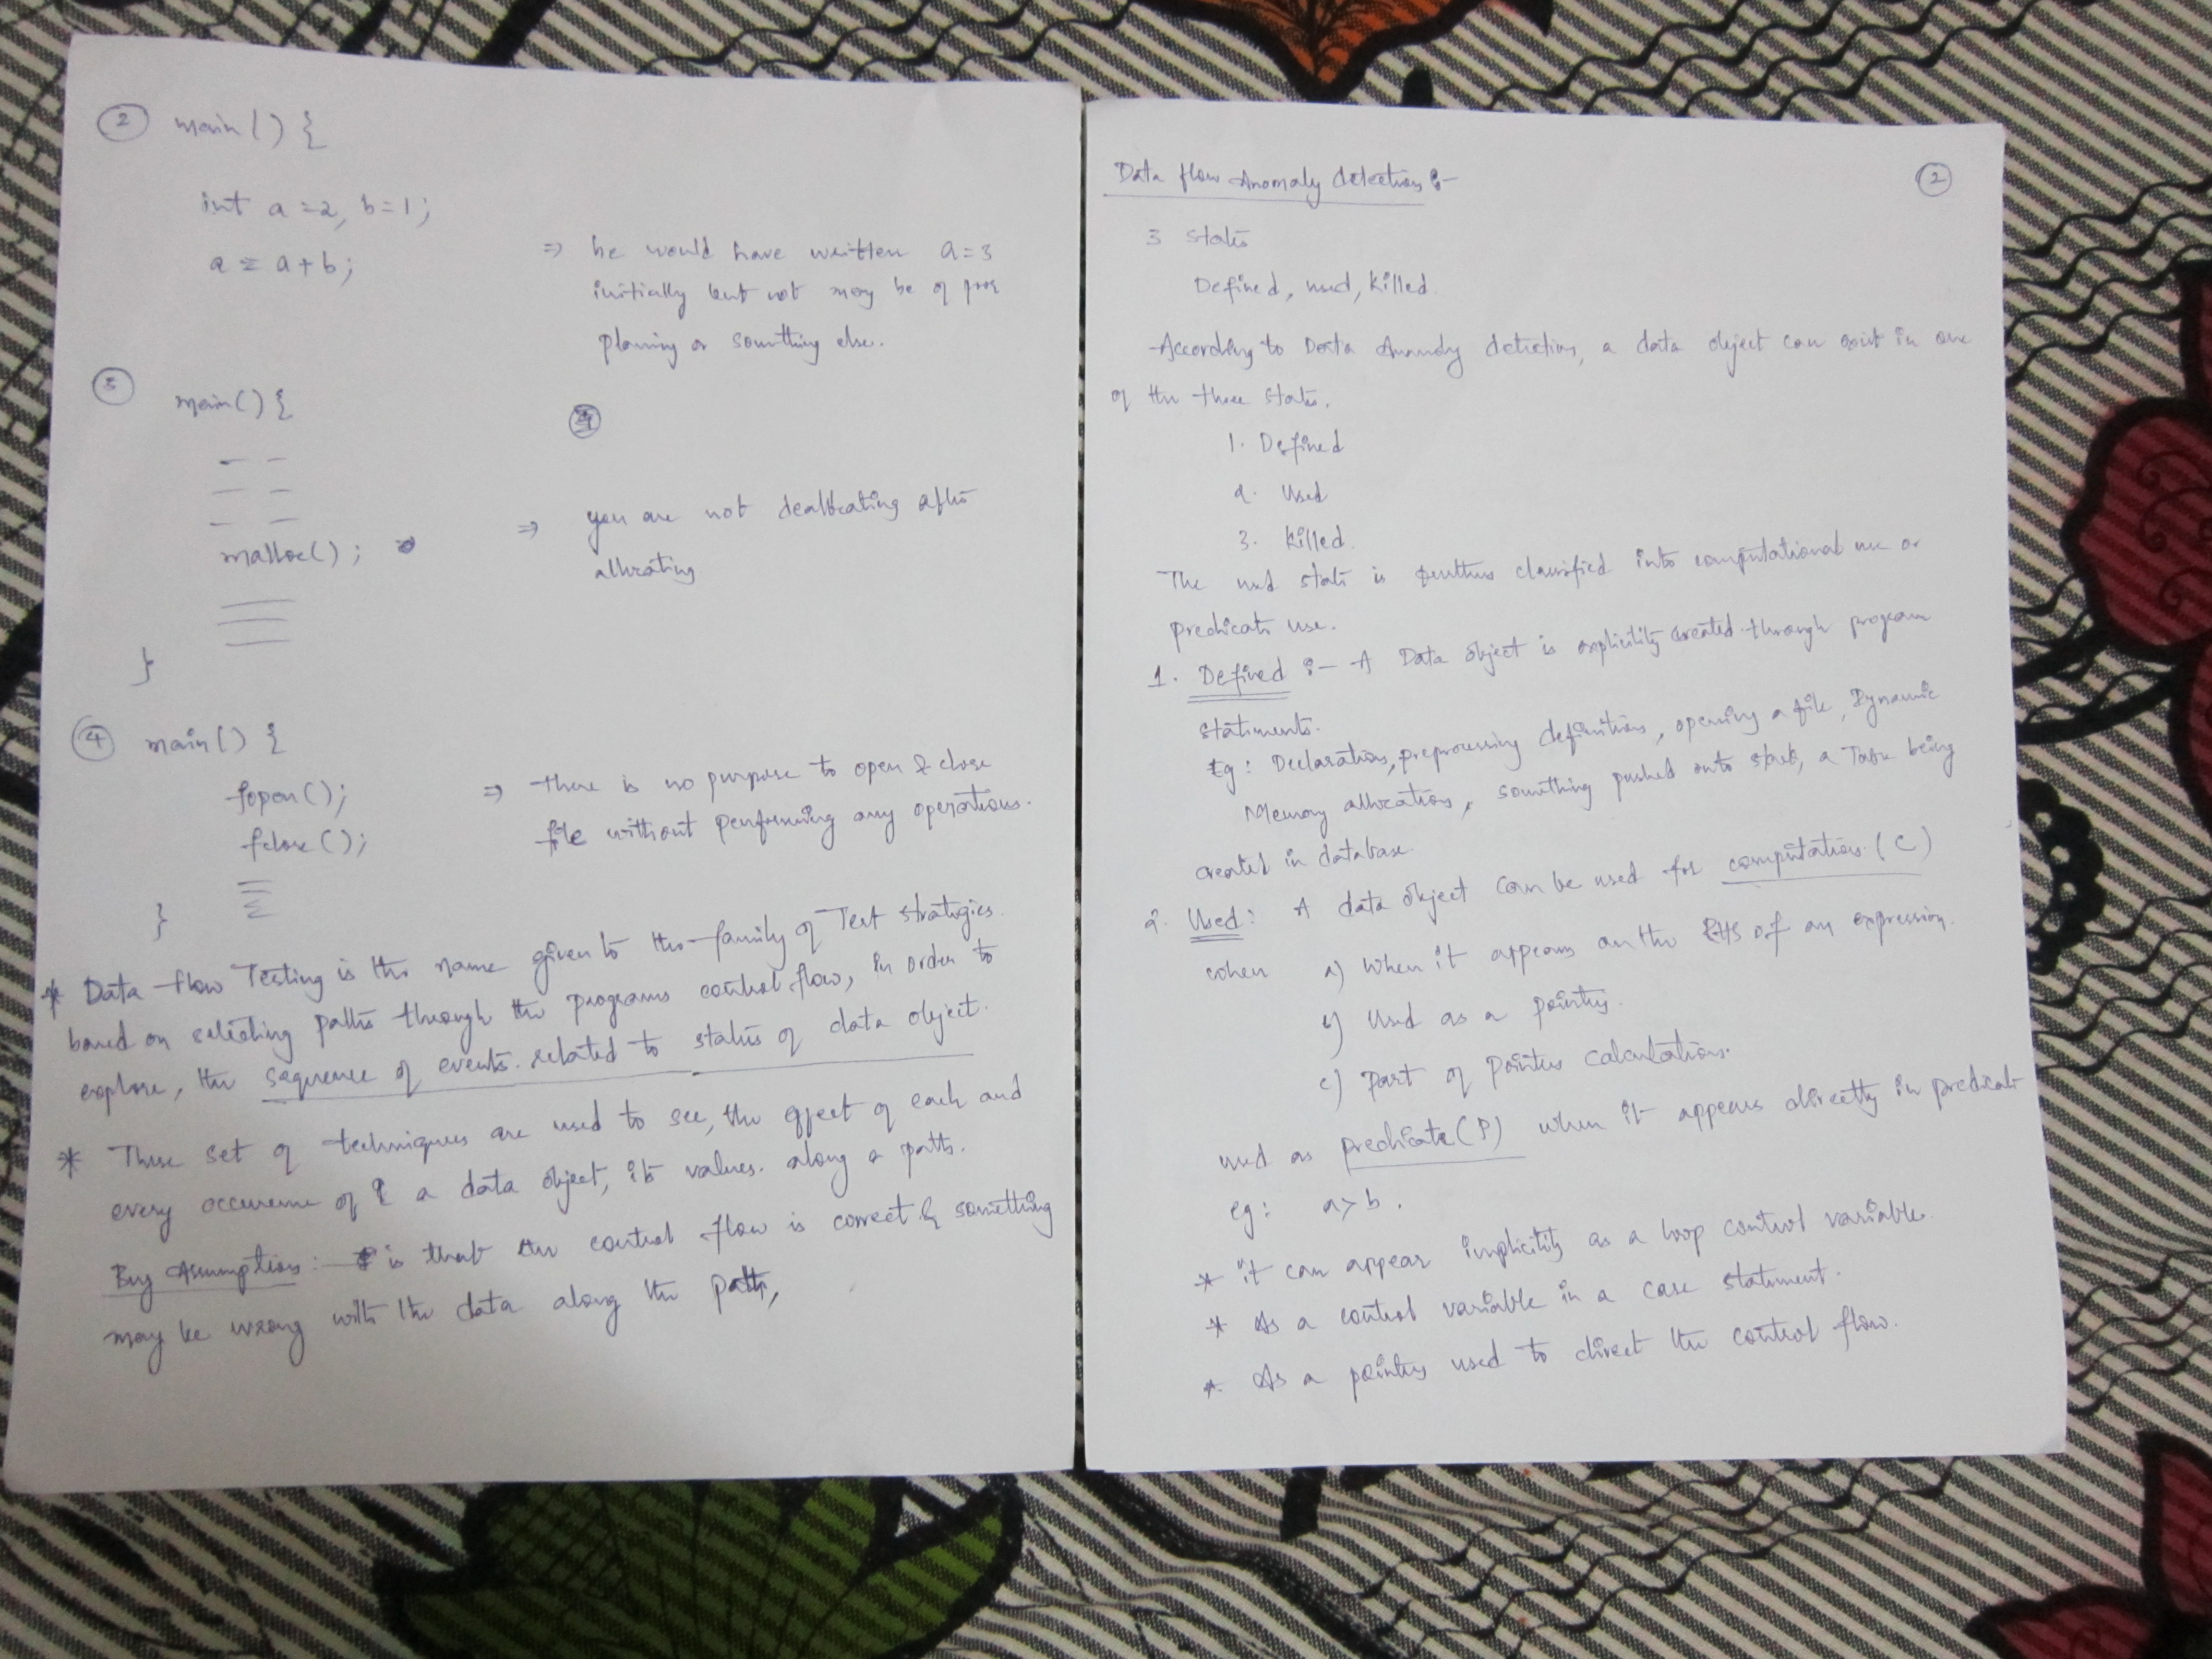 ② main() {
int a=2, b=1;
a = a+b;
⇒ he would have written a=3
initially but not may be of poor
planning or something else.
③ main() {
malloc();
⇒ you are not deallocating after
allocating
}
④ main() {
fopen();
fclose();
⇒ there is no purpose to open & close
file without performing any operations.
}
* Data-flow Testing is the name given to the family of Test strategies
based on selecting paths through the programs control flow, in order to
explore, the sequence of events related to status of data object.
* These set of techniques are used to see, the effect of each and
every occurence of a data object, its values along a path.
Bug Assumption:- is that control flow is correct & something
may be wrong with the data along the path,
②
Data flow Anomaly detection :-
3 states
Defined, used, killed.
According to Data Anomaly detection, a data object can exist in one
of the three states.
1. Defined
2. Used
3. Killed.
The used state is further classified into computational use or
predicate use.
1. Defined :- A Data object is explicitly created through program
statements.
Eg: Declaration, preprocessing definitions, opening a file, Dynamic
Memory allocation, something pushed onto stack, a Table being
created in database.
2. Used: A data object can be used for computation (C)
when a) when it appears on the RHS of an expression.
b) Used as a pointer.
c) Part of pointer calculations.
used as predicate (P) when it appears directly in predicate
eg: a>b.
* it can appear implicitly as a loop control variable.
* As a control variable in a case statement.
* As a pointer used to direct the control flow.